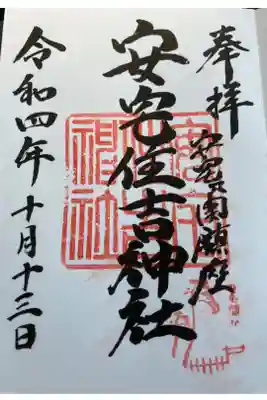 奉拝
安宅関鎮座
安宅住吉神社
令和四年十月十三日